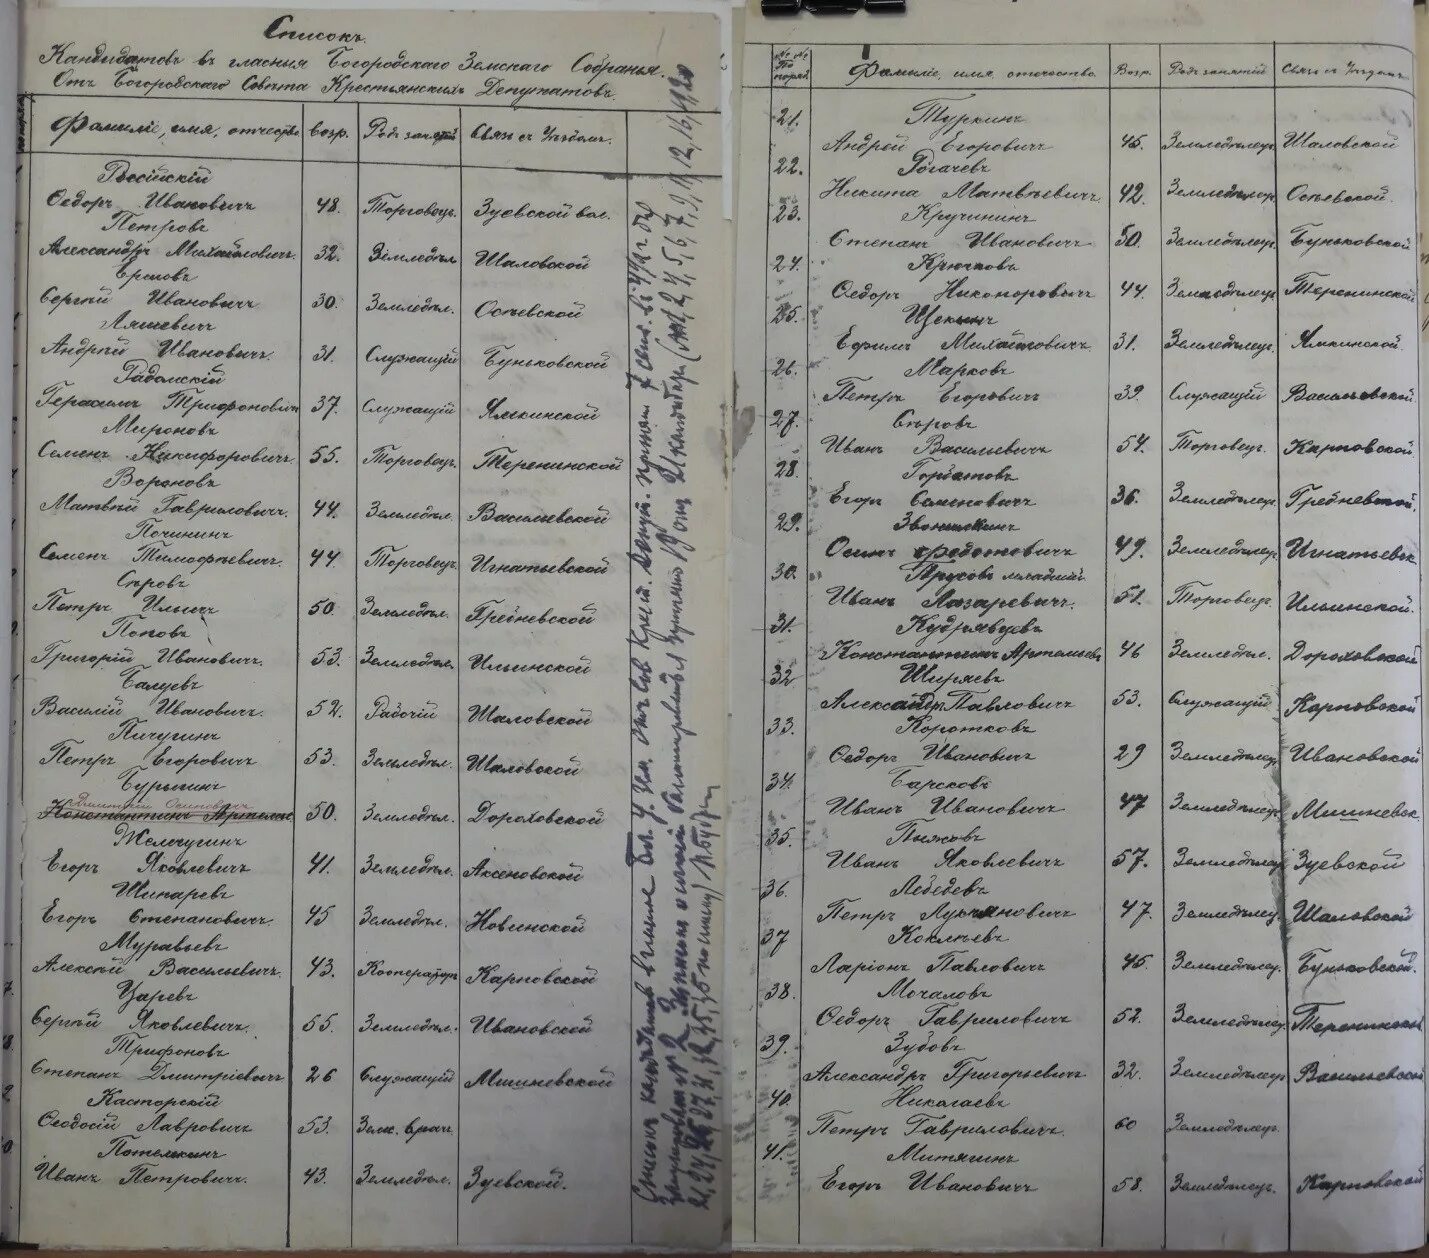 Списокъ
Кандидатовъ въ гласныя Богородскаго Земскаго Собранья
Отъ Богородскаго Совѣта Крестьянскихъ Депутатовъ.
Фамиліе, имя, отчество возр. Родъ занятій Связь съ Уѣздомъ.
Россійскій
Ѳедоръ Ивановичъ 48. Торговецъ. Зуевской вол.
Петровъ
Александръ Михайловичъ. 32. Земледѣл. Шаловской
Ермовъ
Сергѣй Ивановичъ 30. Земледѣл. Осѣевской
Ляшевичъ
Андрей Ивановичъ. 31. Служащій Буньковской
Радомскій
Герасимъ Трифоновичъ 37. Служащій Ямкинской
Мироновъ
Семенъ Никифоровичъ. 55. Торговецъ. Теренинской
Вороновъ
Матвѣй Гавриловичъ. 44. Земледѣл. Васильевской
Почининъ
Семенъ Тимофѣевичъ. 44. Торговецъ. Игнатьевской
Сѣровъ
Петръ Ильичъ 50. Земледѣл. Гребневской
Поповъ
Григорій Ивановичъ. 53. Земледѣл. Ильинской
Балуевъ
Василій Ивановичъ. 52. Рабочій Шаловской
Пичугинъ
Петръ Егоровичъ 53. Земледѣл. Шаловской
Бурыгинъ
Дмитрій Осиповичъ
Константинъ Артемье 50. Земледѣл. Дороховской
Жемчугинъ
Егоръ Яковлевичъ 41. Земледѣл. Аксеновской
Шинаревъ
Егоръ Степановичъ. 45 Земледѣл. Новинской
Муравьевъ
Алексѣй Васильевичъ. 43. Кооператоръ Карповской
Царевъ
Сергѣй Яковлевичъ. 55. Земледѣл. Ивановской
Трифоновъ
Степанъ Дмитріевичъ 26 Служащій Мишневской
Касторскій
Ѳеодосій Лавровичъ 53. Земс. врачъ.
Потемкинъ
Иванъ Петровичъ. 43. Земледѣл. Зуевской.
№№ по поряд. Фамиліе, имя отчество Возр. Родъ занятій Связь съ Уѣздомъ
21. Туркинъ
Андрей Егоровичъ 45. Земледѣлецъ Шаловской
22. Рогачевъ
Никита Матвѣевичъ. 42. Земледѣлецъ Осѣевской.
23. Кручининъ
Степанъ Ивановичъ 50. Земледѣлецъ Буньковской
24. Крючковъ
Ѳедоръ Никоноровичъ 44. Земледѣлецъ Теренинской
25. Щекинъ
Ефимъ Михайловичъ. 31. Земледѣлецъ. Ямкинской.
26. Марковъ
Петръ Егоровичъ 39. Служащій Васильевской
27. Сѣровъ
Иванъ Васильевичъ 54. Торговецъ. Карповской.
28. Горбатовъ
Егоръ Семеновичъ 36. Земледѣлецъ Гребневской.
29. Звонилкинъ
Осипъ Федотовичъ 49. Земледѣлецъ Игнатьевск
30. Трусовъ младшій
Иванъ Лазаревичъ. 51. Торговецъ. Ильинской.
31. Кудрявцевъ
Константинъ Артемьевъ 46 Земледѣл. Дороховской
32 Ширяевъ
Александръ Павловичъ 53. Служащій Карповской
33. Коротковъ
Ѳедоръ Ивановичъ 29 Земледѣлецъ Ивановской
34. Барсковъ
Иванъ Ивановичъ 47 Земледѣлецъ Мишневск.
35. Пыжовъ
Иванъ Яковлевичъ 57. Земледѣлецъ Зуевской
36. Лебедевъ
Петръ Лукьяновичъ 47. Земледѣлецъ Шаловской
37 Коклѣевъ
Ларіонъ Павловичъ 45. Земледѣлецъ. Буньковской.
38. Мочаловъ
Ѳедоръ Гавриловичъ 52. Земледѣлецъ Теренинской
39. Зубовъ
Александръ Григорьевичъ 32. Земледѣлецъ Васильевской
40. Никагаевъ
Петръ Гавриловичъ. 60 Земледѣлецъ.
41. Митягинъ
Егоръ Ивановичъ 58. Земледѣлецъ. Карповской